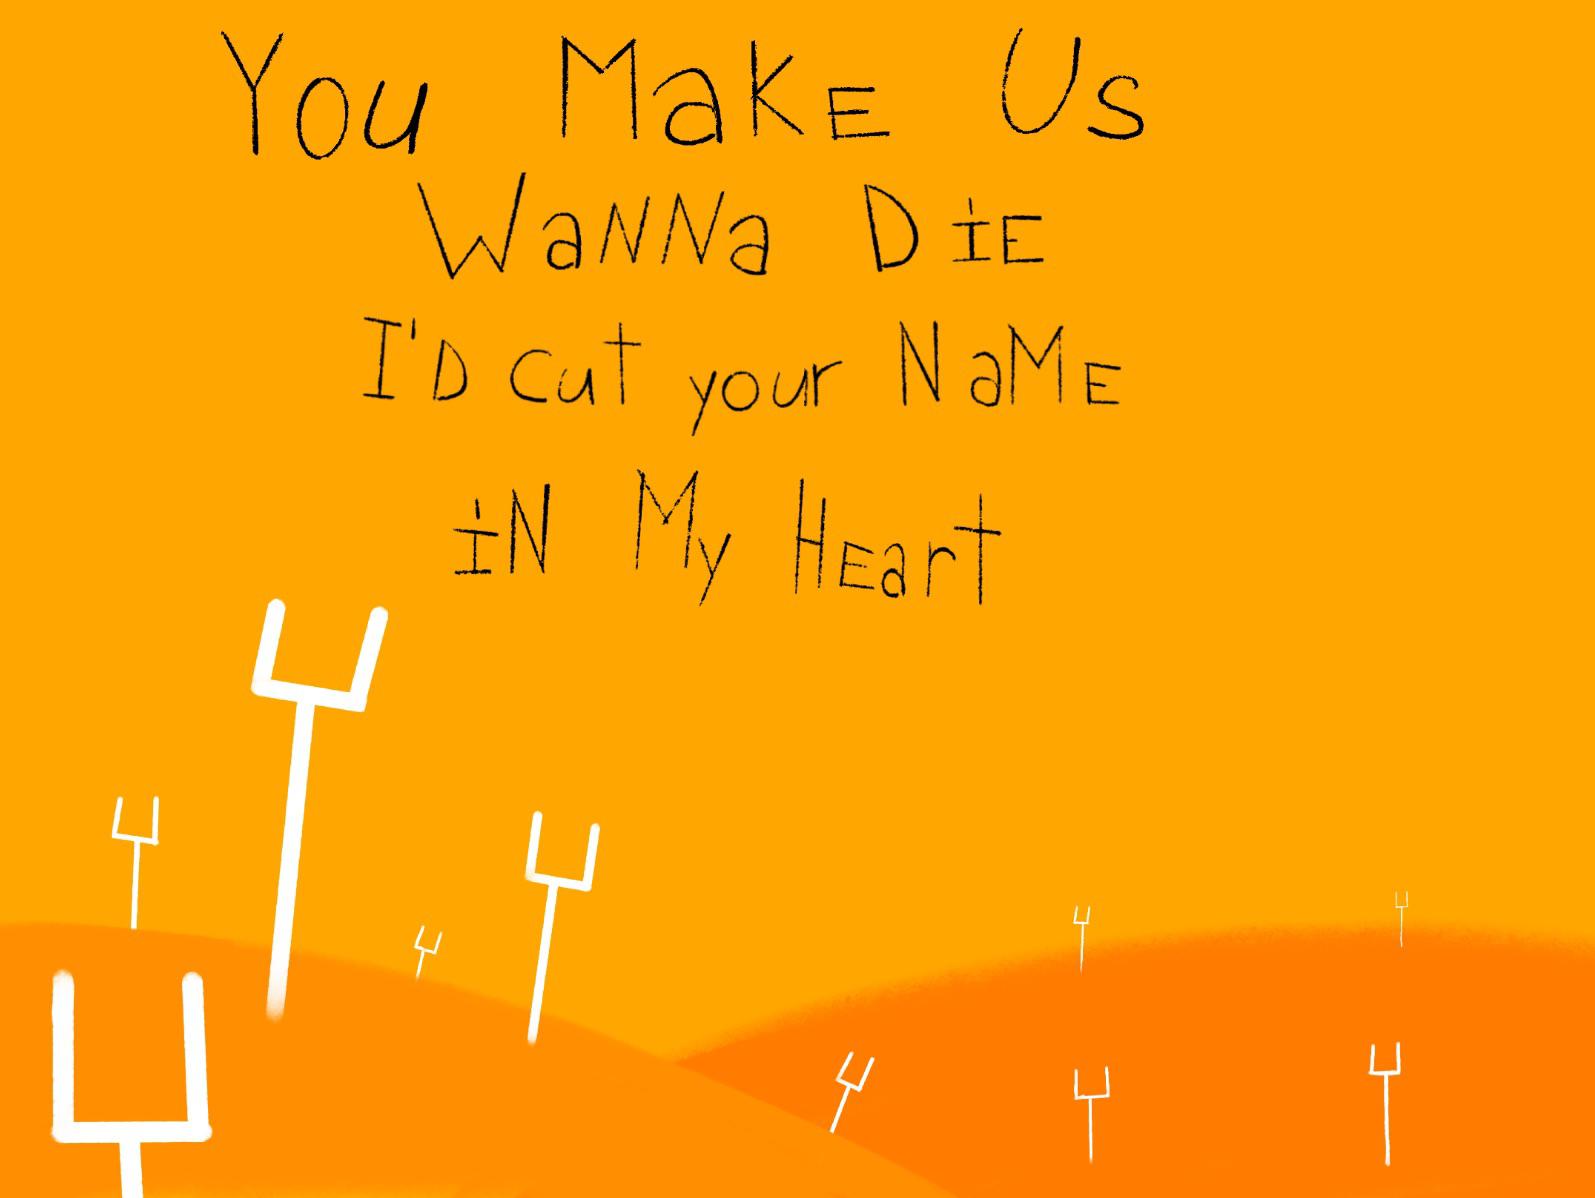 You Make Us
Wanna Die
I'd cut your Name
in My Heart